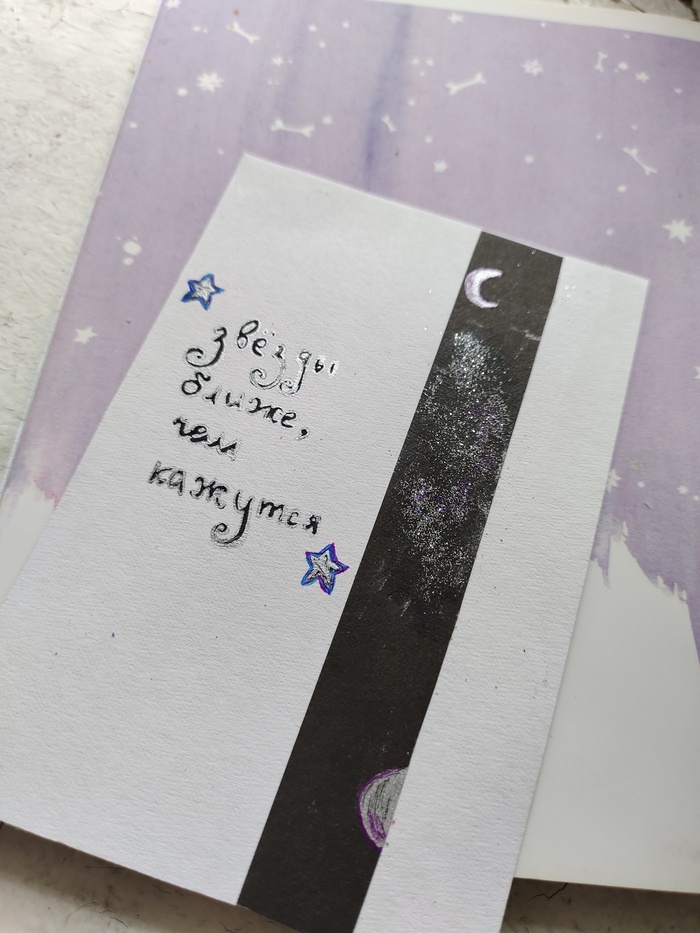 звёзды
ближе,
чем
кажутся